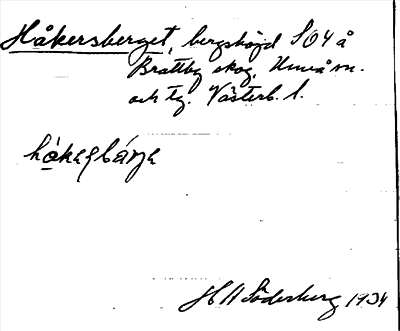 Håkersberget, bergshöjd SO4 å
Brattby skog, Umeå sn.
och tg. Västerb. l.
håkaʂbárjə
H A Söderberg 1934